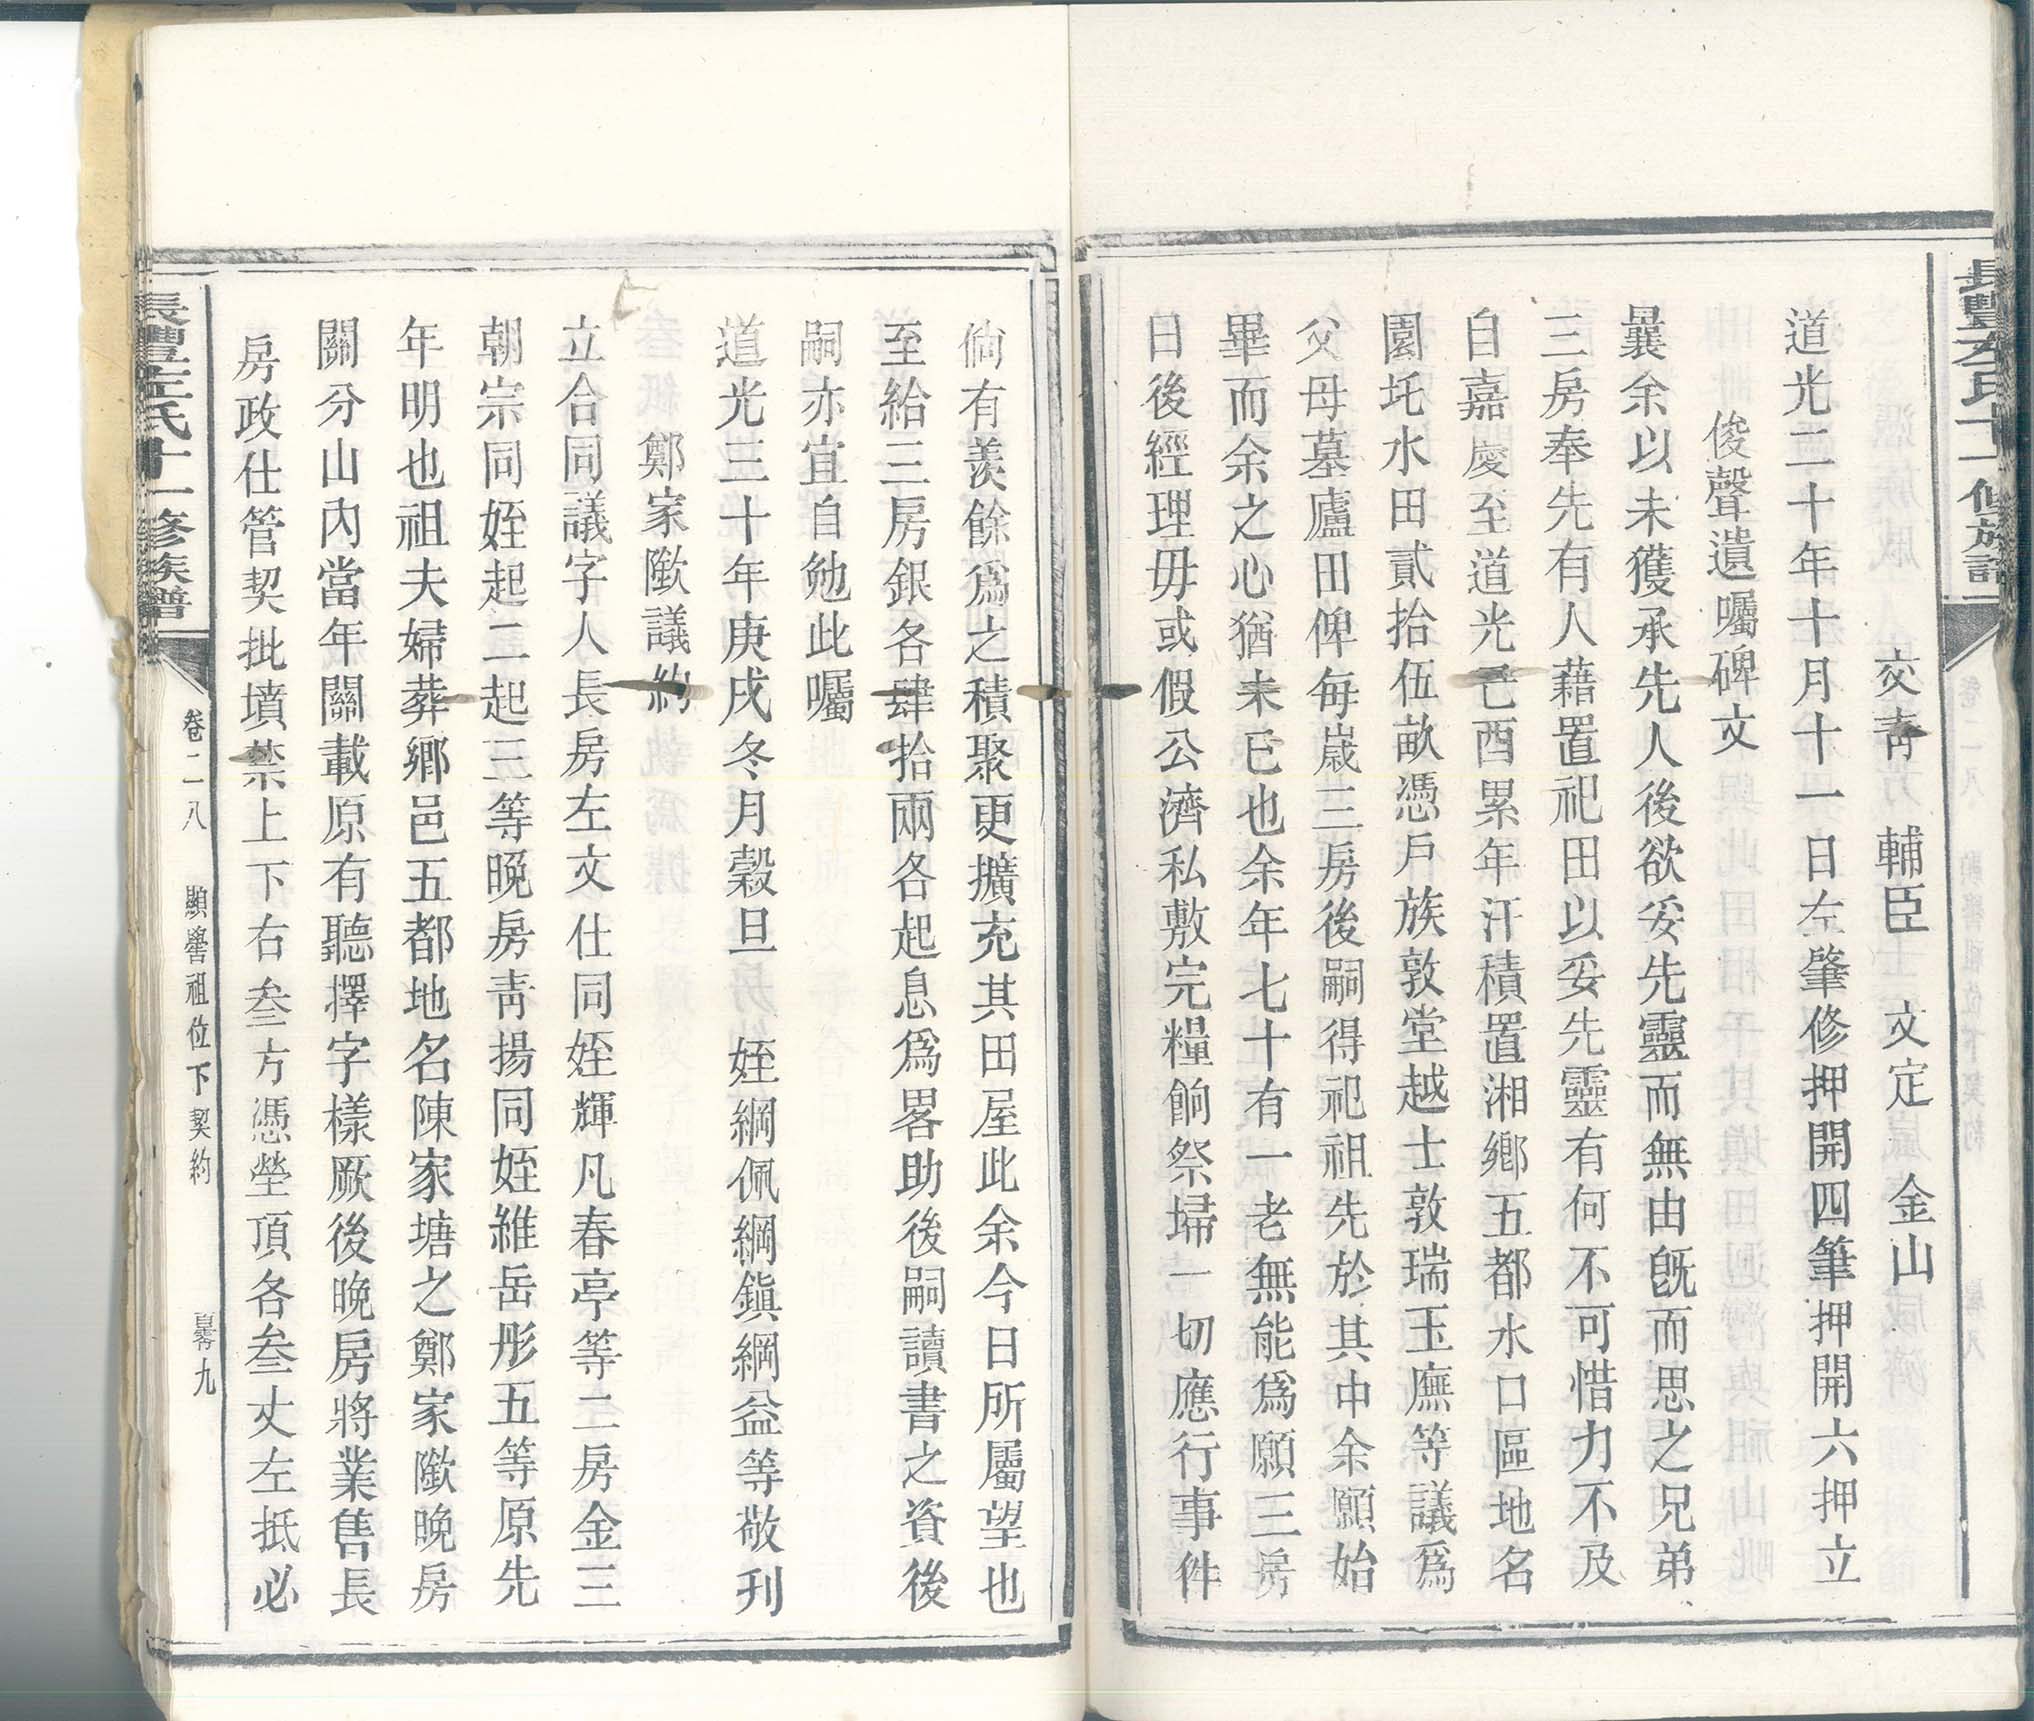 長豐左氏十一修族譜
交靑 輔臣 文定 金山
道光二十年十月十一日左肇修押開四筆押開六押立
俊聲遺囑碑文
曩余以未獲承先人後欲妥先靈而無由旣而思之兄弟
三房奉先有人藉置祀田以妥先靈有何不可惜力不及
自嘉慶至道光己酉累年汗積置湘鄉五都水口區地名
園圫水田貳拾伍畝憑戶族敦堂越士敦瑞玉廡等議爲
父母墓廬田俾每嵗三房後嗣得祀祖先於其中余願始
畢而余之心猶未已也余年七十有一老無能爲願三房
日後經理毋或假公濟私敷完糧餉祭埽一切應行事件
倘有羨餘爲之積聚更擴充其田屋此余今日所屬望也
至給三房銀各肆拾兩各起息爲畧助後嗣讀書之資後
嗣亦宜自勉此囑
道光三十年庚戌冬月穀旦 姪綱佩綱鎭綱益等敬刋
鄭家隞議約
立合同議字人長房左文仕同姪輝凡春亭等二房金三
朝宗同姪起二起三等晚房靑揚同姪維岳彤五等原先
年明也祖夫婦葬鄉邑五都地名陳家塘之鄭家隞晚房
關分山內當年關載原有聽擇字樣厥後晚房將業售長
房政仕管契批墳禁上下右叁方憑塋頂各叁丈左抵必
長豐左氏十一修族譜
卷二八 顯譽祖位下契約 九